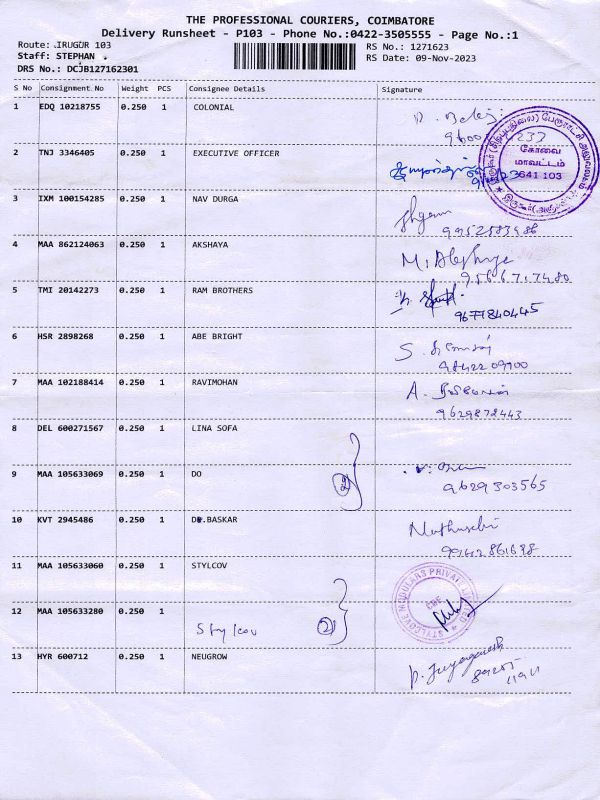 THE PROFESSIONAL COURIERS, COIMBATORE
Delivery Runsheet - P103 - Phone No.:0422-3505555 - Page No.:1
Route: IRUGUR 103
RS No.: 1271623
Staff: STEPHAN
RS Date: 09-Nov-2023
DRS No.: DCJB127162301
S No Consignment No Weight PCS Consignee Details Signature
1 EDQ 10218755 0.250 1 COLONIAL
2 TNJ 3346405 0.250 1 EXECUTIVE OFFICER
கோவை
மாவட்டம்
641 103
3 IXM 100154285 0.250 1 NAV DURGA
9952583986
4 MAA 862124063 0.250 1 AKSHAYA
9566717480
5 TMI 20142273 0.250 1 RAM BROTHERS
9677840445
6 HSR 2898268 0.250 1 ABE BRIGHT
9842209900
7 MAA 102188414 0.250 1 RAVIMOHAN
9629872443
8 DEL 600271567 0.250 1 LINA SOFA
9 MAA 105633069 0.250 1 DO
2
9629303565
10 KVT 2945486 0.250 1 DR.BASKAR
11 MAA 105633060 0.250 1 STYLCOV
12 MAA 105633280 0.250 1
Stylcov
2
STYLCOVE MODULARS PRIVATE LIMITED
CBE
13 HYR 600712 0.250 1 NEUGROW